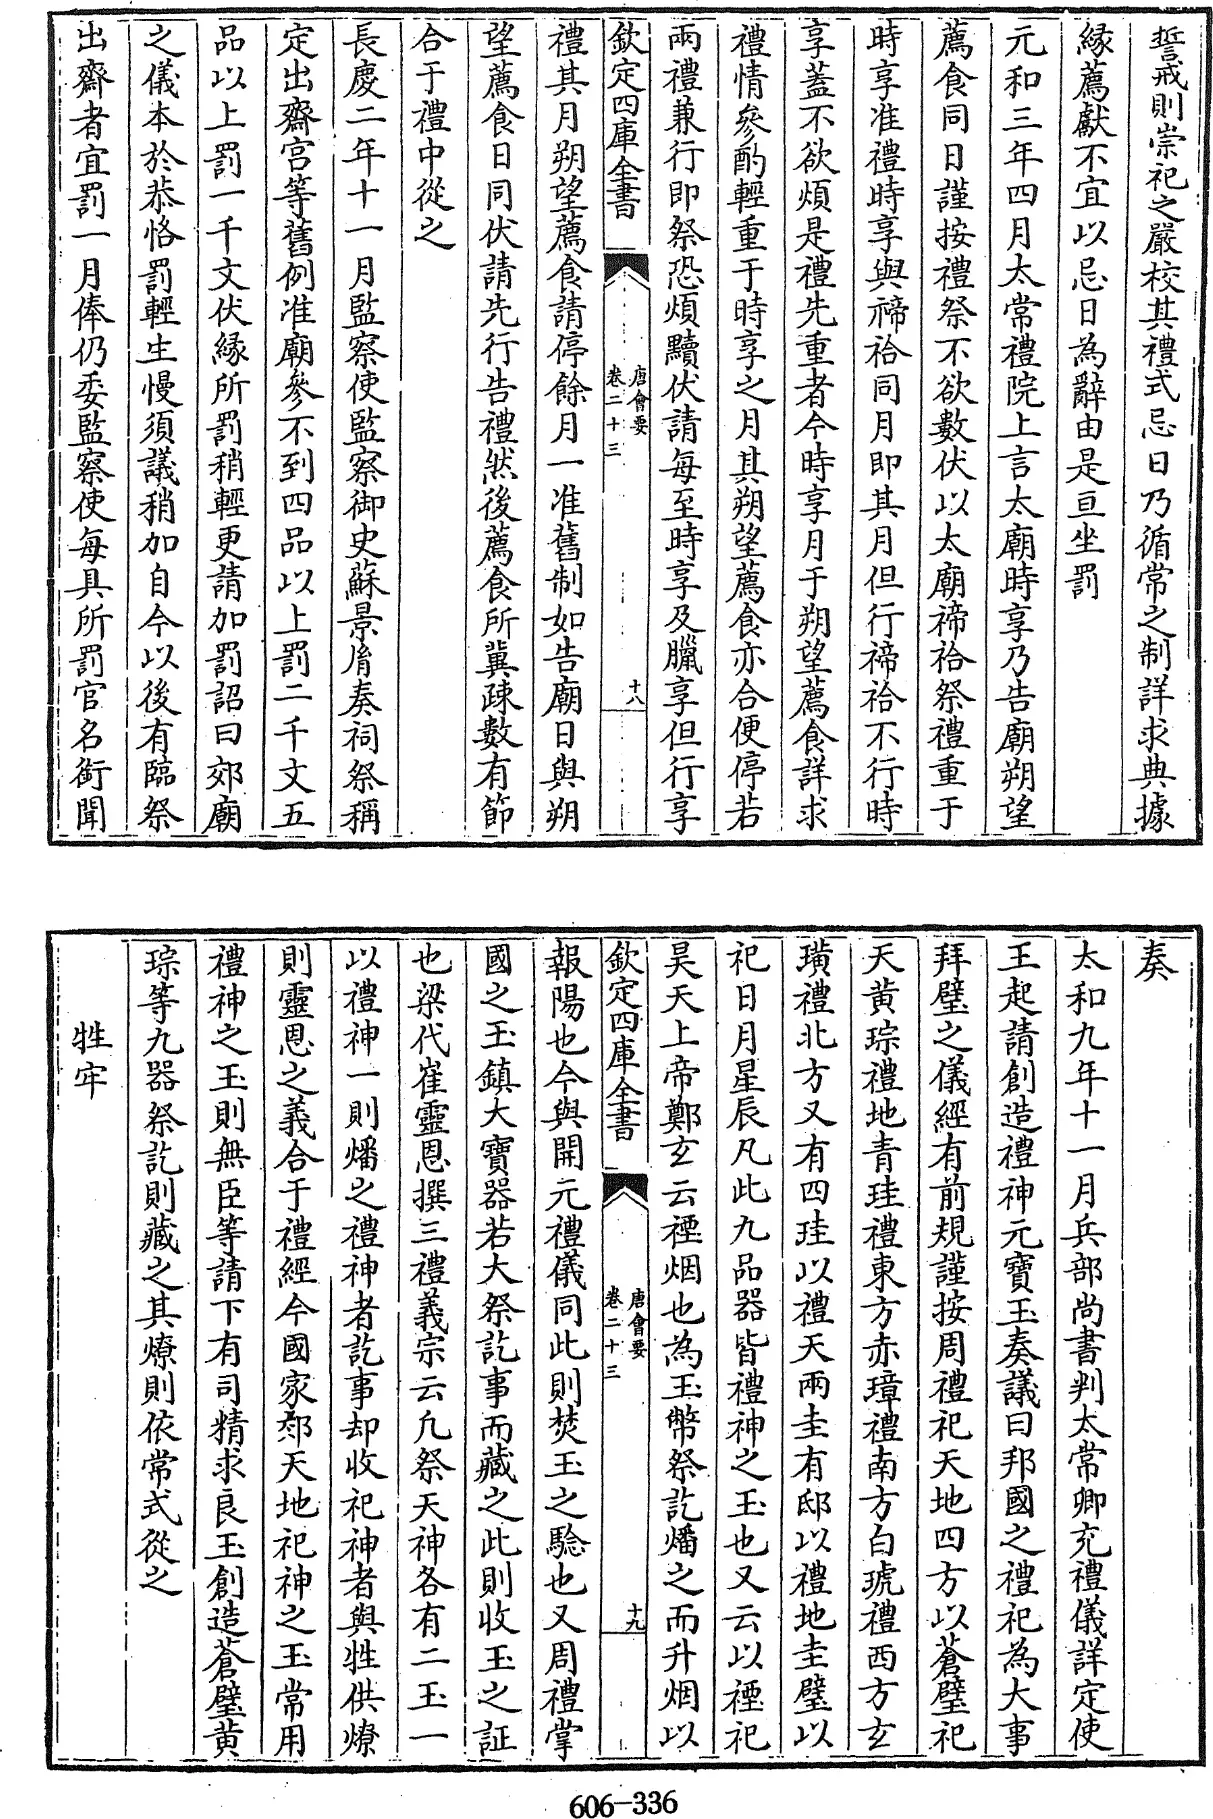 誓戒則崇祀之嚴校其禮式忌日乃循常之制詳求典據
縁薦獻不宜以忌日為辭由是亘坐罰
元和三年四月太常禮院上言太廟時享乃告廟朔望
薦食同日謹按禮祭不欲數伏以太廟禘祫祭禮重于
時享准禮時享與禘祫同月即其月但行禘祫不行時
享蓋不欲煩是禮先重者今時享月于朔望薦食詳求
禮情參酌輕重于時享之月其朔望薦食亦合便停若
兩禮兼行即祭恐煩黷伏請每至時享及臘享但行享
欽定四庫全書
唐會要
卷二十三
十八
禮其月朔望薦食請停餘月一准舊制如告廟日與朔
望薦食日同伏請先行告禮然後薦食所冀疎數有節
合于禮中從之
長慶二年十一月監察使監察御史蘇景胤奏祠祭稱
定出齋宮等舊例准廟參不到四品以上罰二千文五
品以上罰一千文伏縁所罰稍輕更請加罰詔曰郊廟
之儀本於恭恪罰輕生慢須議稍加自今以後有臨祭
出齋者宜罰一月俸仍委監察使每具所罰官名銜聞
奏
太和九年十一月兵部尚書判太常卿充禮儀詳定使
王起請創造禮神元寶玉奏議曰邦國之禮祀為大事
拜璧之儀經有前規謹按周禮祀天地四方以蒼璧祀
天黄琮禮地青珪禮東方赤璋禮南方白琥禮西方玄
璜禮北方又有四珪以禮天兩圭有邸以禮地圭璧以
祀日月星辰凡此九品器皆禮神之玉也又云以禋祀
昊天上帝鄭玄云禋烟也為玉幣祭訖燔之而升烟以
欽定四庫全書
唐會要
卷二十三
十九
報陽也今與開元禮儀同此則焚玉之驗也又周禮掌
國之玉鎮大寶器若大祭訖事而藏之此則收玉之証
也梁代崔靈恩撰三禮義宗云凢祭天神各有二玉一
以禮神一則燔之禮神者訖事却收祀神者與牲供燎
則靈恩之義合于禮經今國家郊天地祀神之玉常用
禮神之玉則無臣等請下有司精求良玉創造蒼璧黄
琮等九器祭訖則藏之其燎則依常式從之
牲牢
606-336